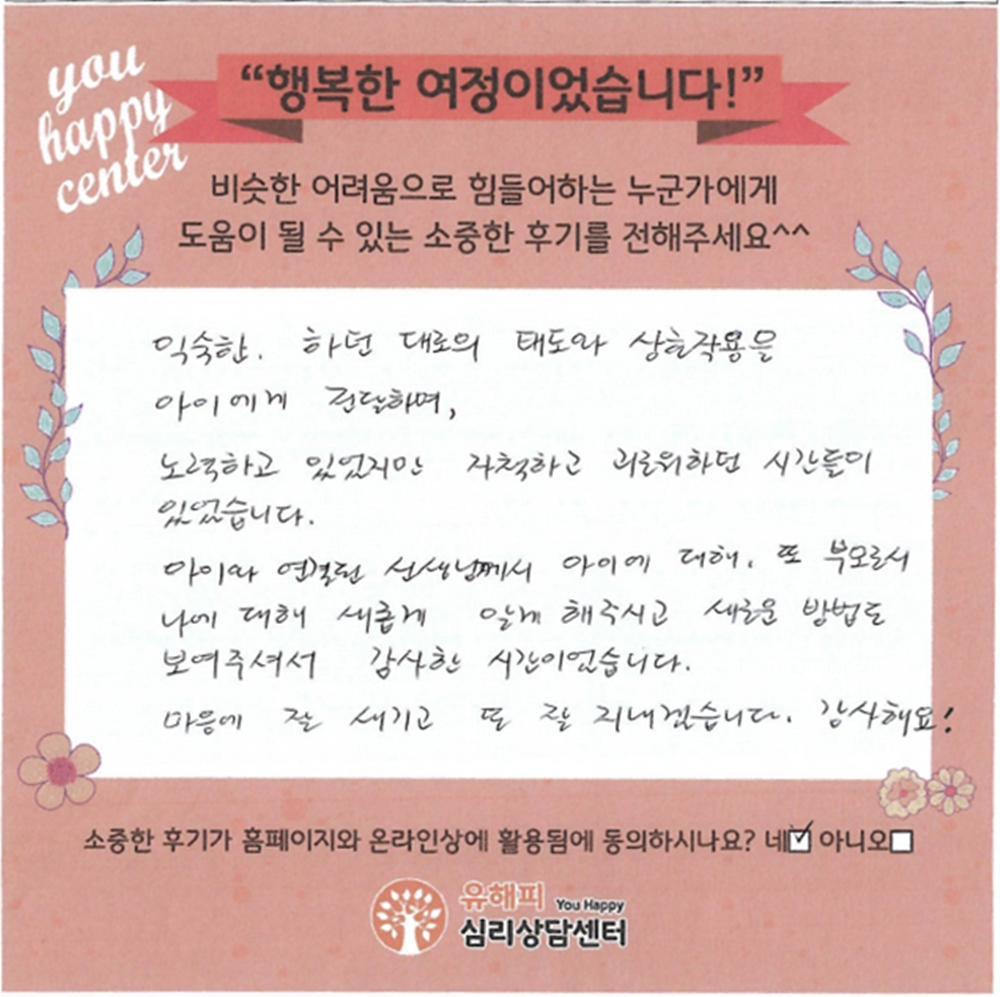 you
happy
center
“행복한 여정이었습니다!”
비슷한 어려움으로 힘들어하는 누군가에게
도움이 될 수 있는 소중한 후기를 전해주세요^^
익숙한. 하던 대로의 태도와 상호작용을
아이에게 전달하며,
노력하고 있었지만 자책하고 괴로워하던 시간들이
있었습니다.
아이와 연결된 선생님께서 아이에 대해. 또 부모로서
나에 대해 새롭게 알게 해주시고 새로운 방법도
보여주셔서 감사한 시간이었습니다.
마음에 잘 새기고 또 잘 지내겠습니다. 감사해요!
소중한 후기가 홈페이지와 온라인상에 활용됨에 동의하시나요? 네☑ 아니오☐
유해피 You Happy
심리상담센터